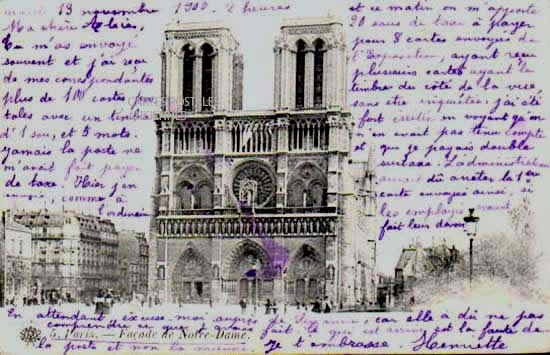 mardi 13 novembre 1900. 2 heures
Ma chère Alice,
Tu m'as envoyé
souvent et j'ai reçu
de mes correspondantes
plus de 100 cartes pos-
tales avec un timbre
d'1 sou, et 5 mots.
jamais la poste ne
m'avait fait payer
de taxe. Hier j'en
envoie, comme à
l'ordinaire
et ce matin on m'apporte
90 sous de taxe à payer
pour 8 cartes envoyées de
l'Exposition, ayant reçu
plusieurs cartes ayant le
timbre du côté de la vue
sans être inquiétée. j'ai été
fort irritée en voyant qu'on
n'en avait pas tenu compte
et que je payais double
surtaxe. L'administration
aurait dû arrêter la 1ère
carte envoyée ainsi, si
les employés avaient
fait leur devoir
En attendant, excuse-moi auprès de ta, car elle a dû ne pas
comprendre ce que j'avais fait. Ce qui est arrivé est la faute de
la poste et non la mienne. Je t'embrasse. Henriette
5. PARIS. — Façade de Notre-Dame.